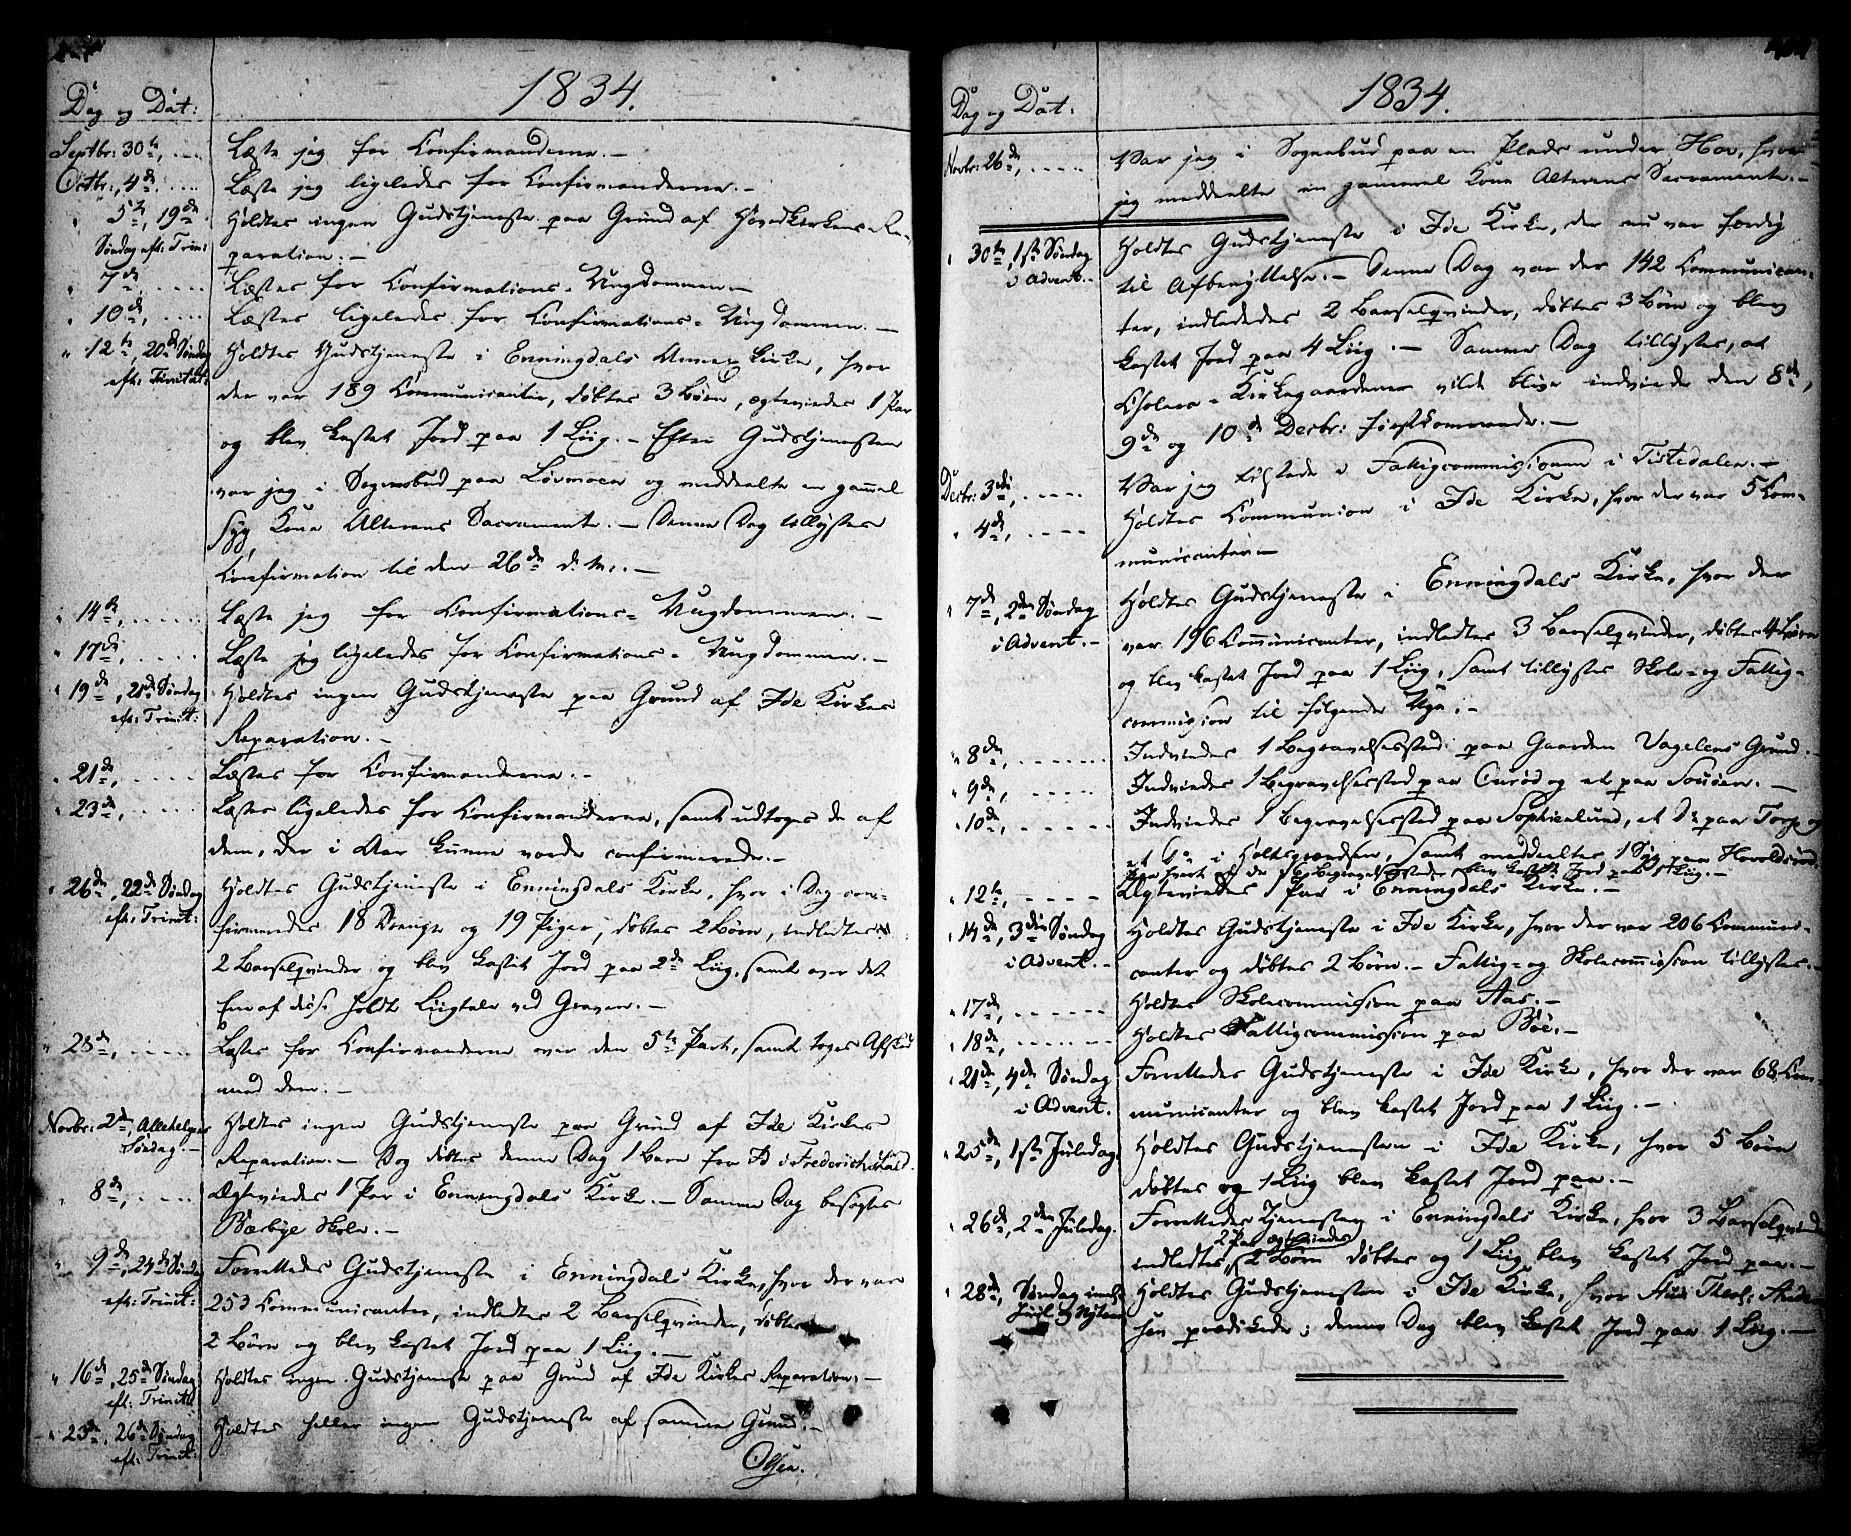 1834.
Dag og Dat:
Septbr: 30te, .... Læste jeg for Confirmanderne. –
Octbr:, 4de .... Læste jeg ligeledes for Confirmanderne. –
" 5te, 19de Holdtes ingen Gudstjeneste paa Grund af Hovedkirkens Re-
Søndag eft: Trin: paration. –
" 7de, .... Læstes for Confirmations-Ungdommen. –
" 10de, .... Læstes ligeledes for Confirmations-Ungdommen. –
" 12te, 20de Søndag Holdtes Gudstjeneste i Enningdals Annex Kirke, hvor
eft: Trinitat: der var 189 Communicanter, døbtes 3 Børn, ægteviedes 1 Par
og blev kastet Jord paa 1 Liig. – Efter Gudstjenesten
var jeg i Sognebud paa Løvmoen og meddeelte en gammel
syg Kone Alterens Sacramente. – Denne Dag tillystes
Confirmation til den 26de d. M. –
" 14de, .... Læste jeg for Confirmations-Ungdommen. –
" 17de, .... Læste jeg ligeledes for Confirmations-Ungdommen. –
" 19de, 21de Søndag Holdtes ingen Gudstjeneste paa Grund af Ide Kirkes
eft: Trinit: Reparation. –
" 21de, .... Læstes for Confirmanderne. –
" 23de, .... Læstes ligeledes for Confirmanderne, samt udtoges de af
dem, der i Aar kunne vorde confirmerede. –
" 26de, 22de Søndag Holdtes Gudstjeneste i Enningdals Kirke, hvor i Dag con-
eft: Trinit: firmeredes 18 Drenge og 19 Piger, døbtes 2 Børn, indledtes
2 Barselqvinder og blev kastet Jord paa 2de Liig, samt over det
Ene af disse holdt Liigtale ved Graven. –
" 28de, .... Læstes for Confirmanderne over den 5te Part, samt toges Afsked
med dem. –
Novbr: 2de, Allehelgens Holdtes ingen Gudstjeneste paa Grund af Ide Kirkes
Søndag. – Reparation. – Dog døbtes denne Dag 1 Barn for Id i Frederichshald.
" 8de, .... Ægteviedes 1 Par i Enningdals Kirke. – Samme Dag besøgtes
Bærbye Skole. –
" 9de, 24de Søndag Forrettedes Gudstjeneste i Enningdals Kirke, hvor der var
eft: Trinit: 253 Communicanter, indledtes 2 Barselqvinder, døbtes
2 Børn og blev kastet Jord paa 1 Liig. –
" 16de, 25de Søndag Holdtes ingen Gudstjeneste paa Grund af Ide Kirkes Reparation. –
eft: Trinit:
" 23de, 26de Søndag Holdtes heller ingen Gudstjeneste af samme Grund. –
eft: Trinit: Olsen.
1834.
Dag og Dat:
Novbr: 26de, .... Var jeg i Sognebud paa en Plads under Hov, hvor
jeg meddeelte en gammel Kone Alterens Sacramente. –
" 30te, 1ste Søndag Holdtes Gudstjeneste i Ide Kirke, der nu var færdig
i Advent. – til Afbenyttelse. – Denne Dag var der 142 Communican-
ter, indlededes 2 Barselqvinder, døbtes 3 Børn og blev
kastet Jord paa 4 Liig. – Samme Dag tillystes, at
Cholera-Kirkegaardene vilde blive indviede den 8de,
9de og 10de Decbr: førstkommende. –
Decbr: 3die, .... Var jeg tilstede i Fattigcommissionen i Tistedalen. –
" 4de, .... Holdtes Communion i Ide Kirke, hvor der var 5 Com-
municanter. –
" 7de, 2den Søndag Holdtes Gudstjeneste i Enningdals Kirke, hvor der
i Advent. – var 196 Communicanter, indledtes 3 Barselqvinder, døbtes 4 Børn
og blev kastet Jord paa 1 Liig, samt tillystes Skole- og Fattig-
commission til følgende Uge. –
" 8de, .... Indviedes 1 Begravelsessted paa Gaarden Vagelens Grund. –
" 9de, .... Indviedes 1 Begravelsessted paa og et paa –
" 10de, .... Indviedes 1 Begravelsessted paa Sophienlund, et Do paa Torp og
et Do i samt meddeeltes 1 Syg paa
hvert af de 6 Begravelsessteder blev kastet Jord paa 1 Liig. –
" 12te, .... Ægteviedes 1 Par i Enningdals Kirke. –
" 14de, 3die Søndag Holdtes Gudstjeneste i Ide Kirke, hvor der var 206 Communi-
i Advent. – canter og døbtes 2 Børn. – Fattig- og Skolecommission tillystes. –
" 17de, .... Holdtes Skolecommission paa Aas. –
" 18de, .... Holdtes Fattigcommission paa Bøe. –
" 21de, 4de Søndag Forrettedes Gudstjeneste i Ide Kirke, hvor der var 68 Com-
i Advent. municanter og blev kastet Jord paa 1 Liig. –
" 25de, 1ste Juledag. Holdtes Gudstjenesten i Ide Kirke, hvor 5 Børn
døbtes og 1 Liig blev kastet Jord paa. –
" 26de, 2den Juledag. Forrettedes Tjenesten i Enningdals Kirke, hvor 3 Barselqvinder
2 Par ægteviedes
indledtes, 2 Børn døbtes og 1 Liig blev kastet Jord paa. –
" 28de, Søndag imell: Holdtes Gudstjenesten i Ide Kirke, hvor Stud: Theol:
Juul og Nytaar sen prædikede; denne Dag blev kastet Jord paa 1 Liig. –